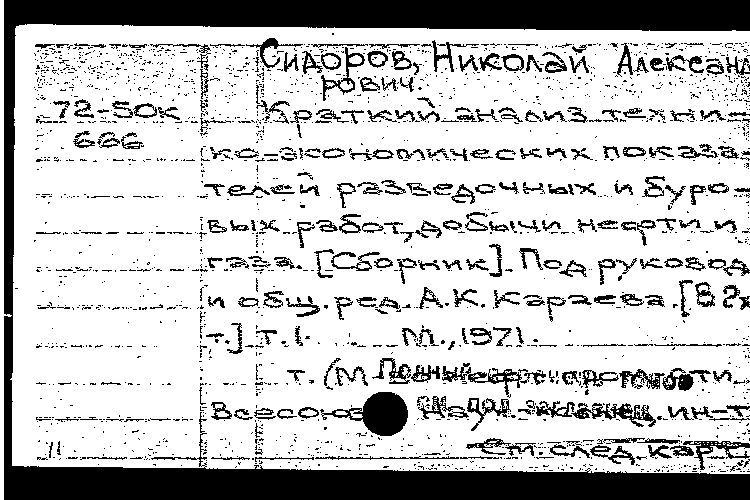 Сидоров, Николай Александ
рович.
72-50к
Краткий анализ техни-
666
ко-экономических показа-
телей разведочных и буро-
вых работ, добычи нефти и
газа. [Сборник]. Под руковод
и общ. ред. А.К. Караева. [В 2х
т.] т. 1. М., 1971.
т. (М
Полный
томов
Всесоюз ин-т
см. под
11
См. след. карт.